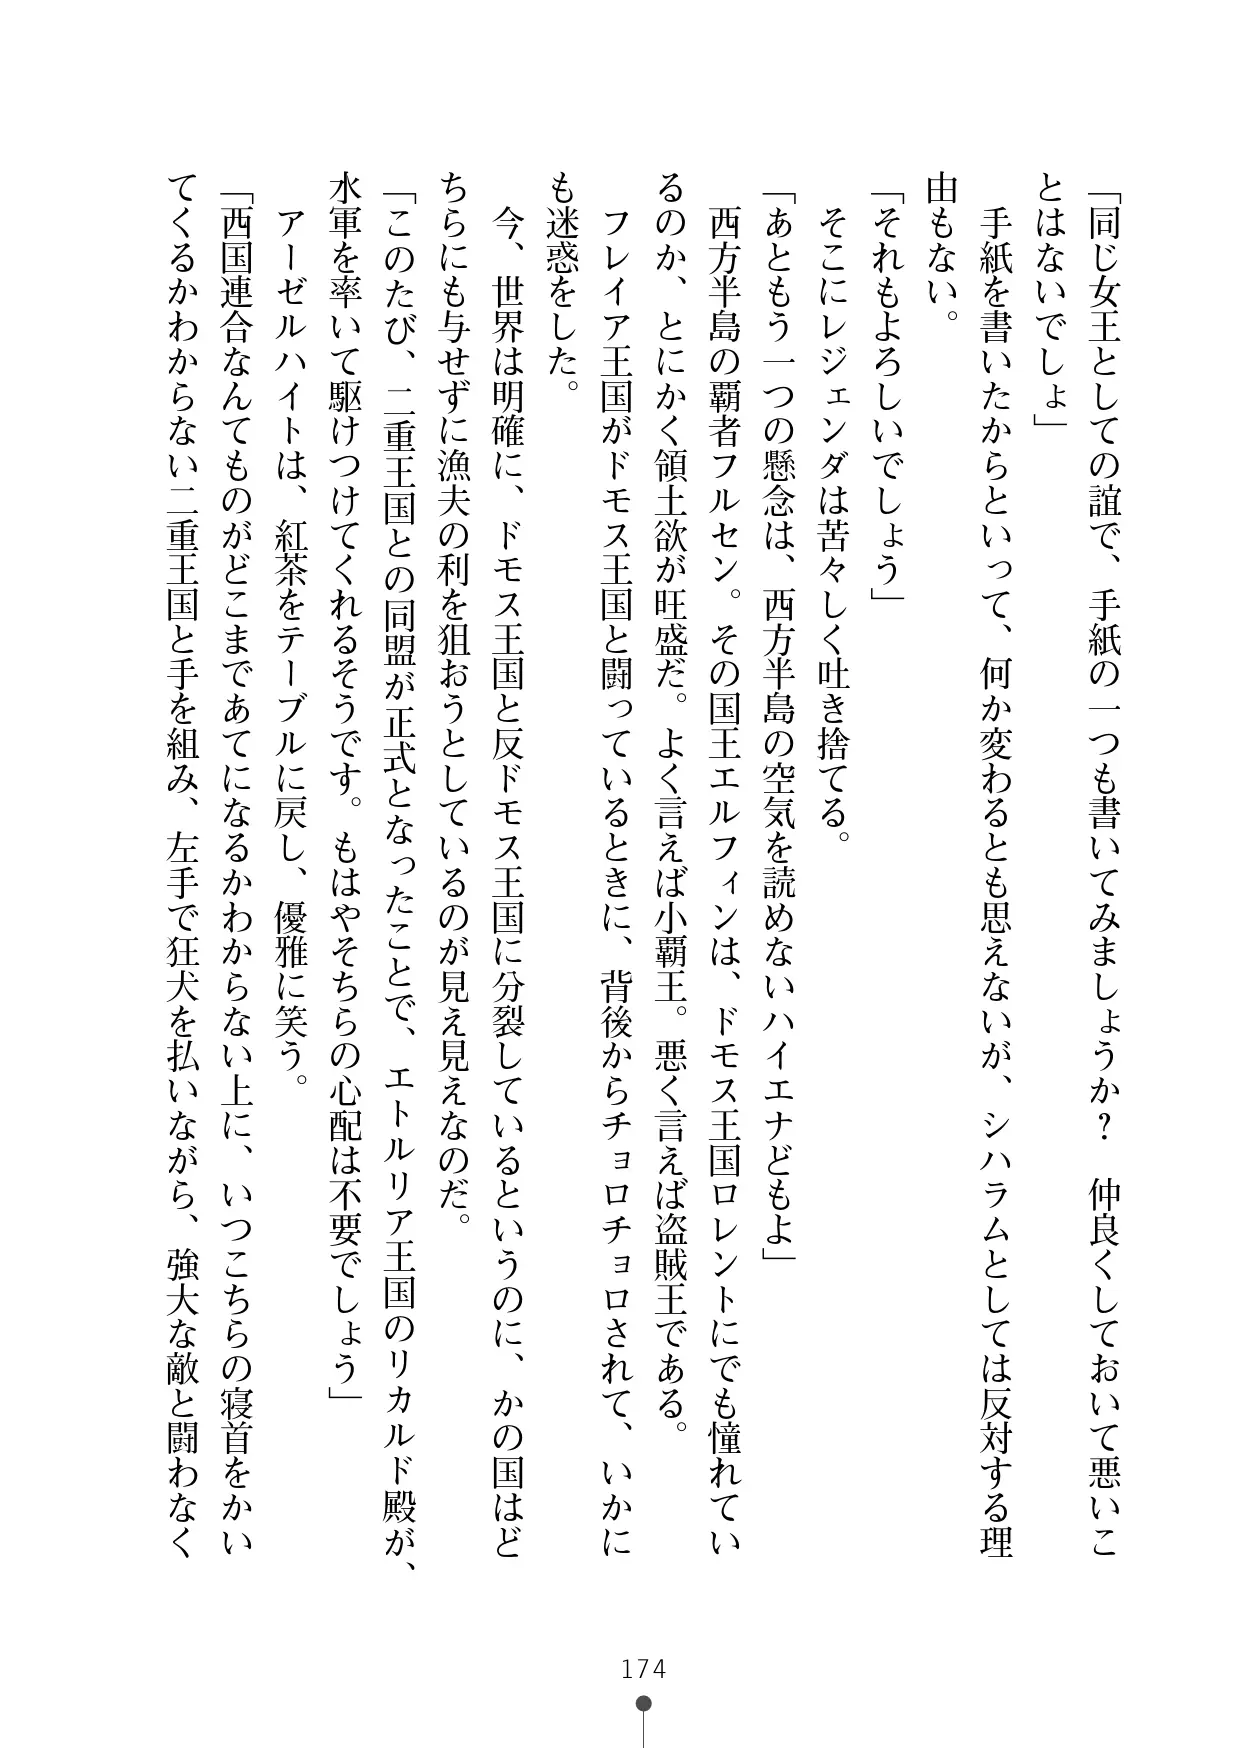 「同じ女王としての誼で、手紙の一つも書いてみましょうか？　仲良くしておいて悪いこ
とはないでしょ」
　手紙を書いたからといって、何か変わるとも思えないが、シハラムとしては反対する理
由もない。
「それもよろしいでしょう」
　そこにレジェンダは苦々しく吐き捨てる。
「あともう一つの懸念は、西方半島の空気を読めないハイエナどもよ」
　西方半島の覇者フルセン。その国王エルフィンは、ドモス王国ロレントにでも憧れてい
るのか、とにかく領土欲が旺盛だ。よく言えば小覇王。悪く言えば盗賊王である。
　フレイア王国がドモス王国と闘っているときに、背後からチョロチョロされて、いかに
も迷惑をした。
　今、世界は明確に、ドモス王国と反ドモス王国に分裂しているというのに、かの国はど
ちらにも与せずに漁夫の利を狙おうとしているのが見え見えなのだ。
「このたび、二重王国との同盟が正式となったことで、エトルリア王国のリカルド殿が、
水軍を率いて駆けつけてくれるそうです。もはやそちらの心配は不要でしょう」
　アーゼルハイトは、紅茶をテーブルに戻し、優雅に笑う。
「西国連合なんてものがどこまであてになるかわからない上に、いつこちらの寝首をかい
てくるかわからない二重王国と手を組み、左手で狂犬を払いながら、強大な敵と闘わなく
174